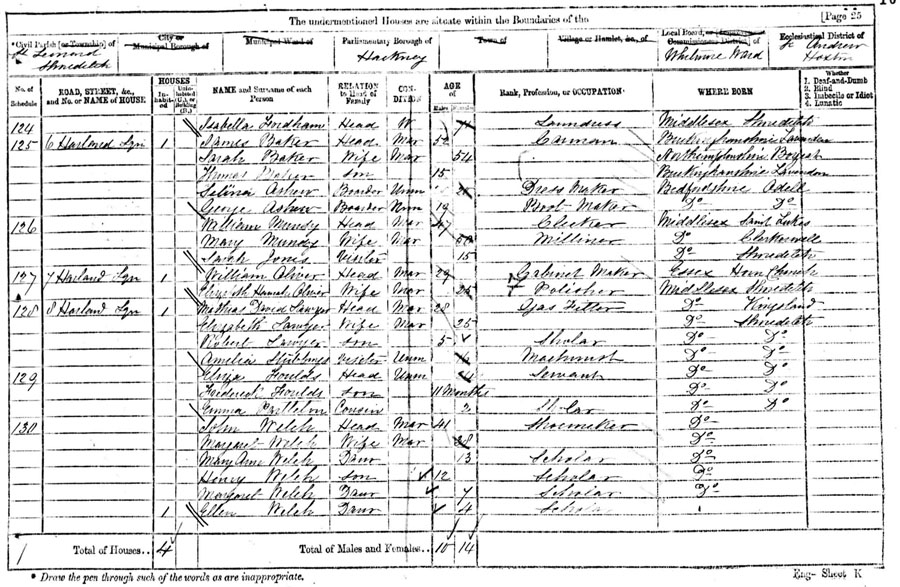 The undermentioned Houses are situate within the Boundaries of the
[Page 25
Civil Parish [or Township] of
City or Municipal Borough of
Municipal Ward of
Parliamentary Borough of
Town of
Village or Hamlet, &c., of
Local Board, or [Improvement Commissioners District] of
Ecclesiastical District of
St Leonard Shoreditch
Hackney
Whitmore Ward
St Andrew Hoxton
No. of Schedule
ROAD, STREET, &c., and No. or NAME of HOUSE
HOUSES
Inhabited
Uninhabited (U.) or Building (B.)
NAME and Surname of each Person
RELATION to Head of Family
CONDITION
AGE of
Males
Females
Rank, Profession, or OCCUPATION
WHERE BORN
Whether
1. Deaf-and-Dumb
2. Blind
3. Imbecile or Idiot
4. Lunatic
124 Isabella Fordham Head W. Laundress Middlesex Shoreditch
125 6 Harland Sqr 1 James Baker Head Mar 52 Carman Buckinghamshire
Sarah Baker Wife Mar 54 Northamptonshire
Baker Son 15 Buckinghamshire
Selina Boarder Unm Dress Maker Bedfordshire Odell
George Boarder Unm 19 Boot Maker Do Do
126 William Mundy Head Mar 47 Clicker Middlesex Saint Lukes
Mary Mundy Wife Mar Milliner Do Clerkenwell
Sarah Jones Visitor 15 Do Shoreditch
127 7 Harland Sqr 1 William Oliver Head Mar 29 Cabinet Maker Essex
Elizabeth Hannah Oliver Wife Mar 25 Polisher Middlesex Shoreditch
128 8 Harland Sqr 1 David Sawyer Head Mar 28 Gas Fitter Do Kingsland
Elizabeth Sawyer Wife Mar 25 Do Shoreditch
Robert Sawyer Son 5 Scholar Do Do
Amelia Visitor Unm Do Do
129 Eliza Foulds Head Unm Servant Do Do
Frederick Foulds Son 11 Months Do Do
Emma Cousin Scholar Do Do
130 John Welch Head Mar 41 Shoemaker Do
Margaret Welch Wife Mar 38 Do
Mary Ann Welch Daur 13 Scholar Do
Henry Welch Son 12 Scholar Do
Margaret Welch Daur 7 Scholar Do
1 Ellen Welch Daur 4 Scholar
1 Total of Houses.. 4 Total of Males and Females.. 10 14
* Draw the pen through such of the words as are inappropriate.
Eng- Sheet K